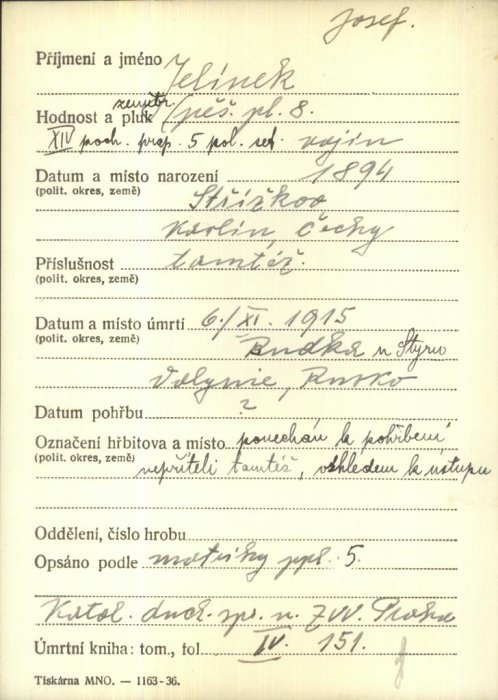 Josef.
Příjmení a jméno Jelínek
zeměbr.
Hodnost a pluk pěš. pl. 8.
XIV poch. prap. 5 pol. set. vojín
Datum a místo narození 1894
(polit. okres, země)
Střížkov
Karlín, Čechy
Příslušnost tamtéž.
(polit. okres, země)
Datum a místo úmrtí 6./XI. 1915
(polit. okres, země)
Rudka u Styru
Volynie, Rusko
Datum pohřbu ?
Označení hřbitova a místo ponechán k pohřbení
(polit. okres, země)
nepříteli tamtéž, vzhledem k ústupu
Oddělení, číslo hrobu
Opsáno podle matriky ppl. 5.
Katol. duch. spr. u ZVV. Praha
Úmrtní kniha: tom., fol. IV. 151.
Tiskárna MNO. — 1163-36.